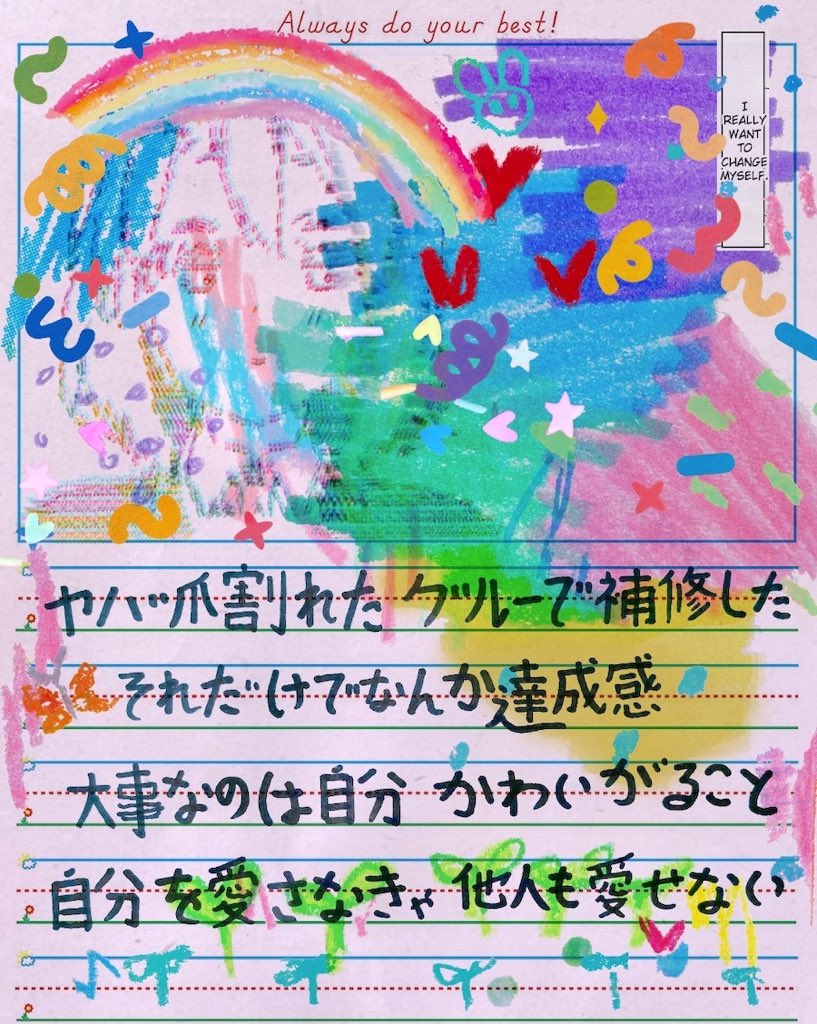 Always do your best!
I
REALLY
WANT
TO
CHANGE
MYSELF.
ヤバッ爪割れた グルーで補修した
それだけでなんか達成感
大事なのは自分 かわいがること
自分を愛さなきゃ 他人も愛せない